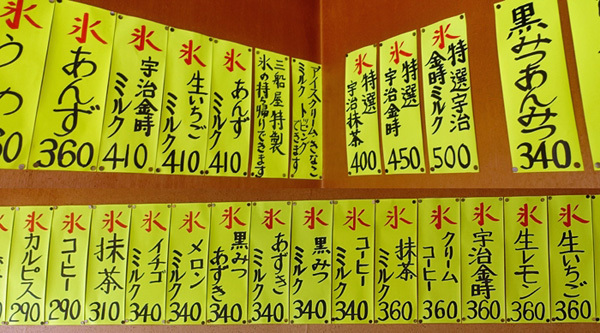 氷
氷
あんず
360
氷
宇治金時
ミルク
410
氷
生いちご
ミルク
410
氷
あんず
ミルク
410
三船屋特製
氷の持ち帰りできます
アイスクリーム きなこ
ミルク トッピング
できます
氷
特選
宇治抹茶
400
氷
特選
宇治金時
450
氷
特選宇治
金時ミルク
500
黒みつあんみつ
340
氷
カルピス
290
氷
コーヒー
290
氷
抹茶
310
氷
イチゴ
ミルク
340
氷
メロン
ミルク
340
氷
黒みつ
あずき
340
氷
あずき
ミルク
340
氷
黒みつ
ミルク
340
氷
コーヒー
ミルク
340
氷
抹茶
ミルク
360
氷
クリーム
コーヒー
360
氷
宇治金時
360
氷
生レモン
360
氷
生いちご
360